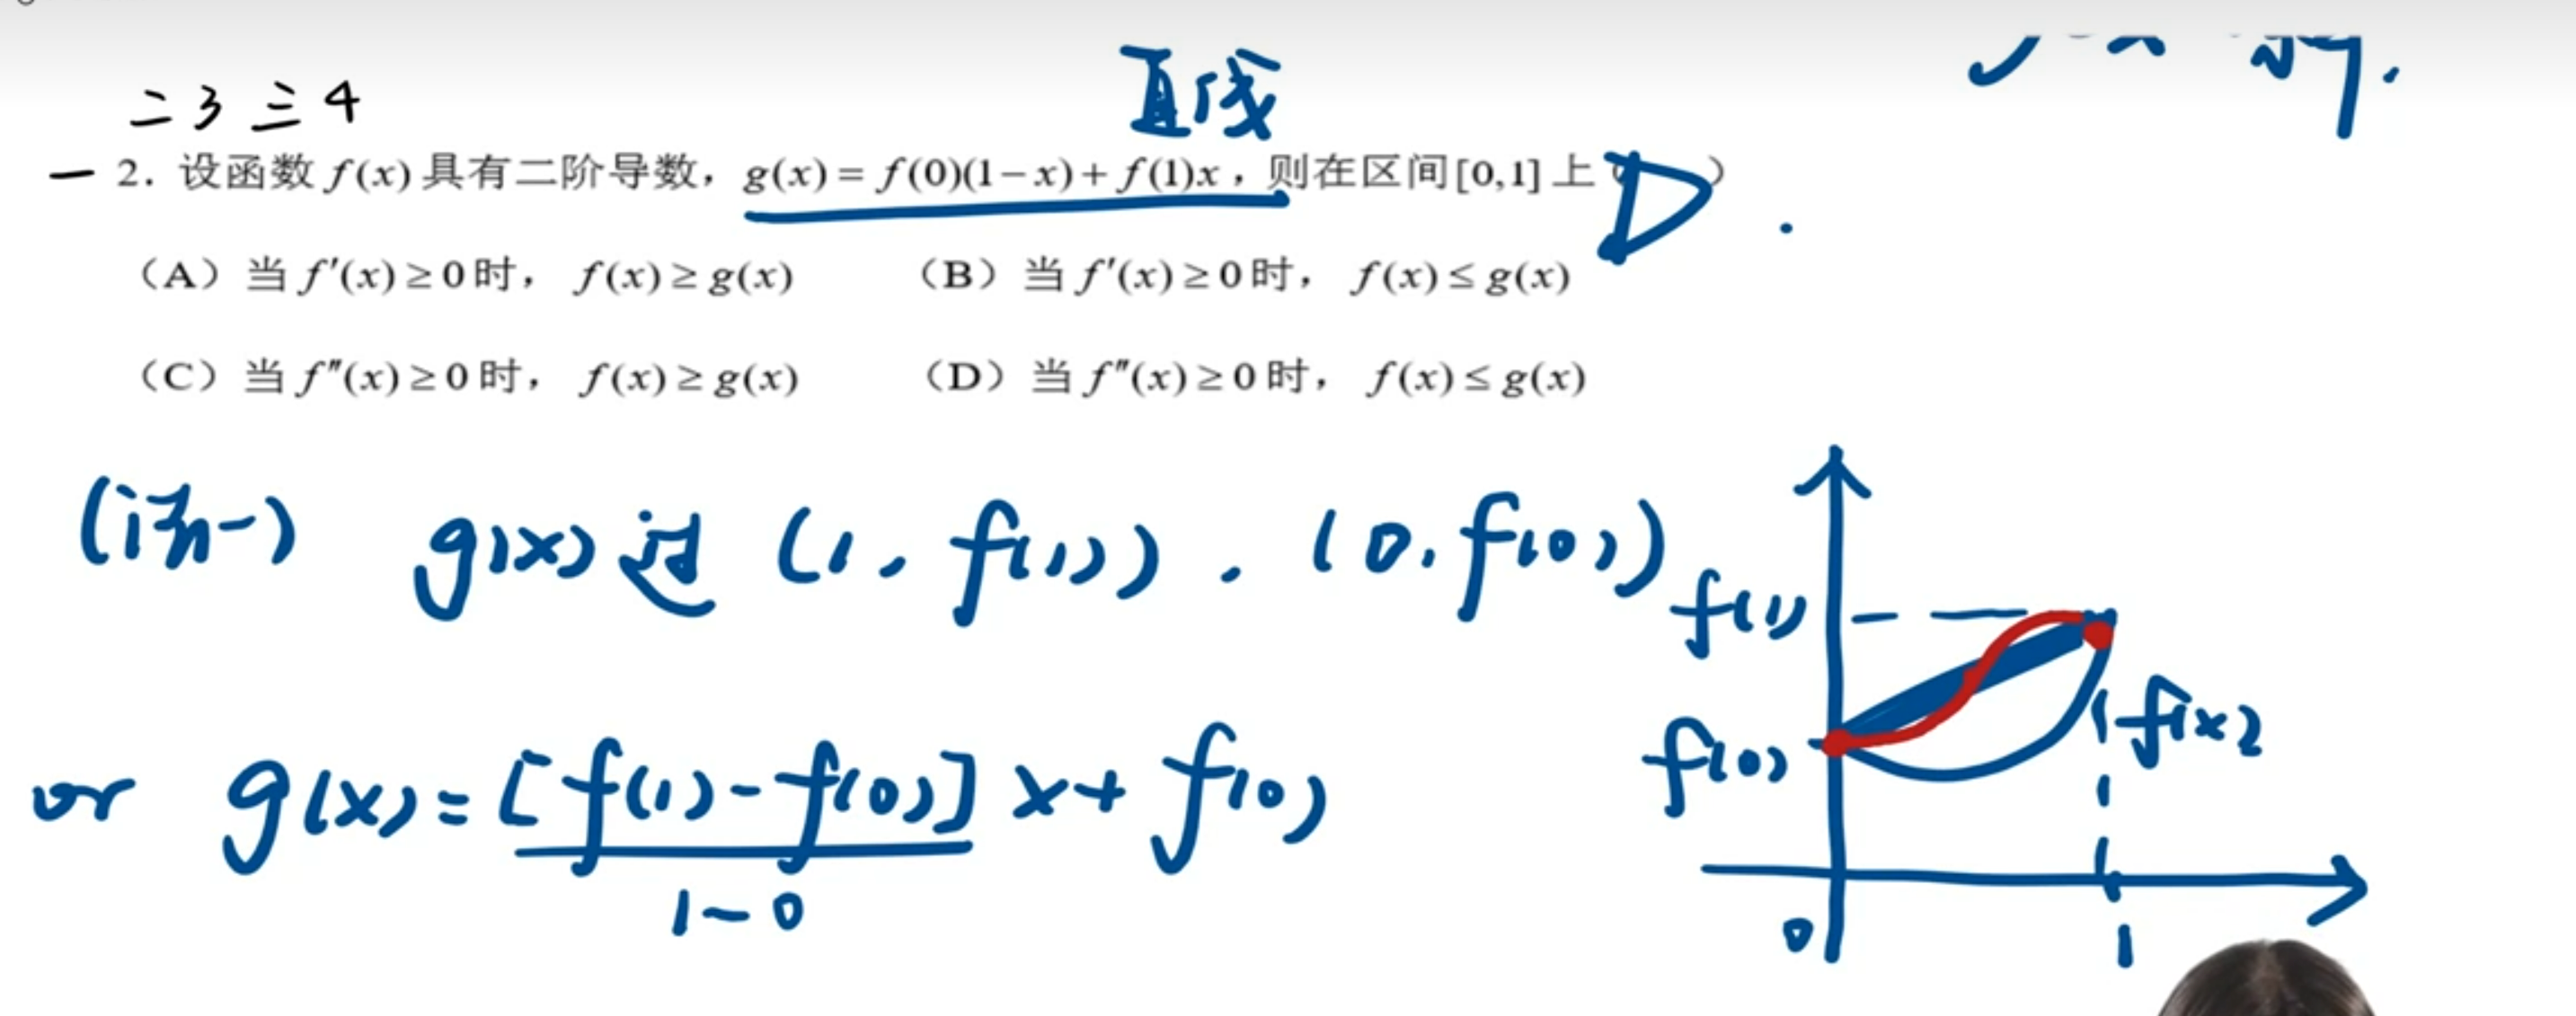 直线
二3 三4
一 2. 设函数 f(x) 具有二阶导数，g(x) = f(0)(1−x)+ f(1)x，则在区间[0,1]上（ D ）.
（A）当 f′(x) ≥ 0 时， f(x) ≥ g(x) （B）当 f′(x) ≥ 0 时， f(x) ≤ g(x)
（C）当 f″(x) ≥ 0 时， f(x) ≥ g(x) （D）当 f″(x) ≥ 0 时， f(x) ≤ g(x)
(法一) g(x) 过 (1, f(1)). (0, f(0))
f(1)
f(x)
f(0)
or g(x) = [f(1)-f(0)] x + f(0)
1-0
0
1